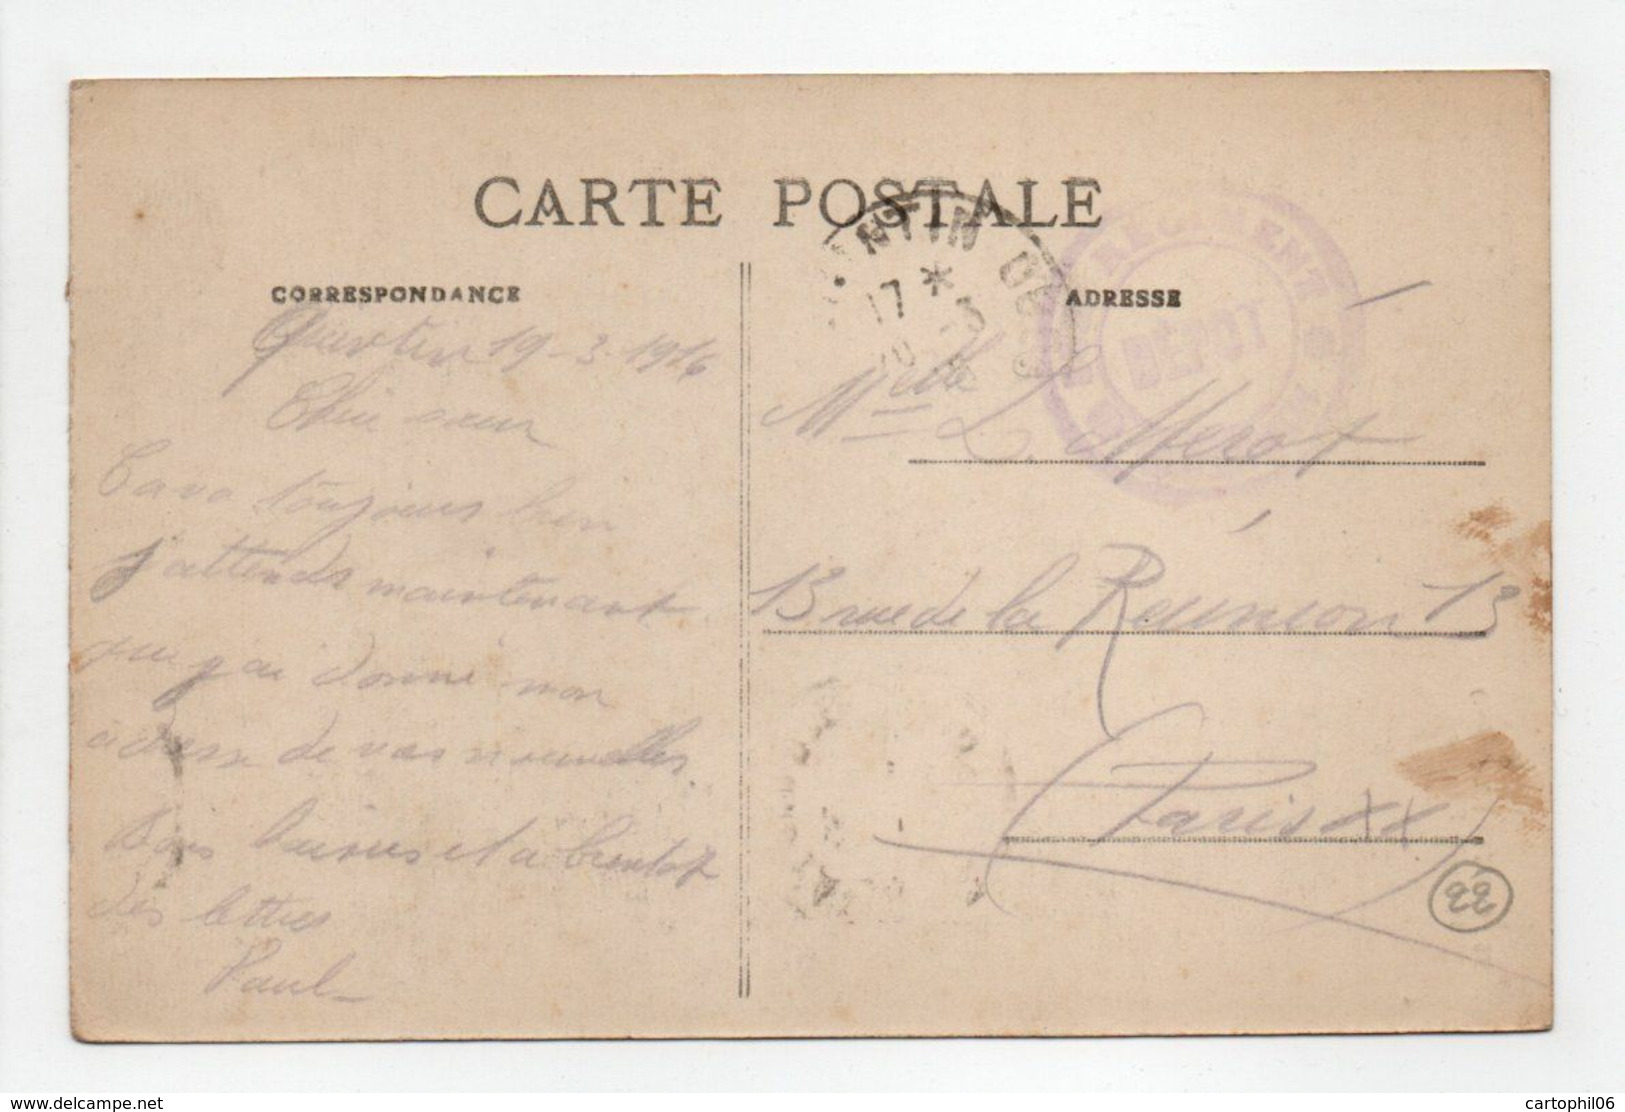 CARTE POSTALE
CORRESPONDANCE
Quintin 19-3-1916
Chère sœur
Ca va toujours bien
j'attends maintenant
que j'ai donné mon
adresse de vos nouvelles
Bons baisers et a bientot
des lettres
Paul
ADRESSE
NTIN
17 * -3
RÉGIMENT
DÉPÔT
Melle L. Merot
13 rue de la Réunion 13
Paris XX
22
www.delcampe.net
cartophil06